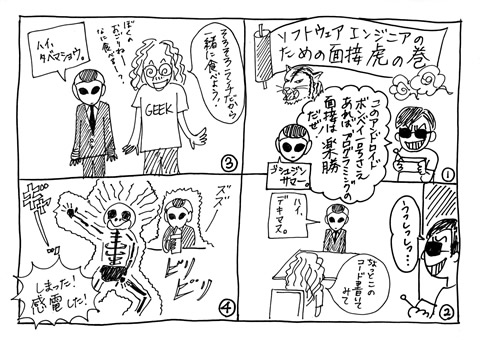 ソフトウェア エンジニアの
ための面接 虎の巻
このアンドロイド
ボンベイ1号さえ
あればプログラミングの
面接は楽勝
だぜ
ゴシュジン
サマー。
①
ウッシッシッ…
ハイ、
デキマス。
ちょっとこの
コード書いて
みて
②
そろそろランチだから
一緒に食べよう!
ぼく、
なに食べます〜?
ハイ、
タベマショウ。
GEEK
③
ズズ
ビリ
ビリ
しまった!
感電した!
④